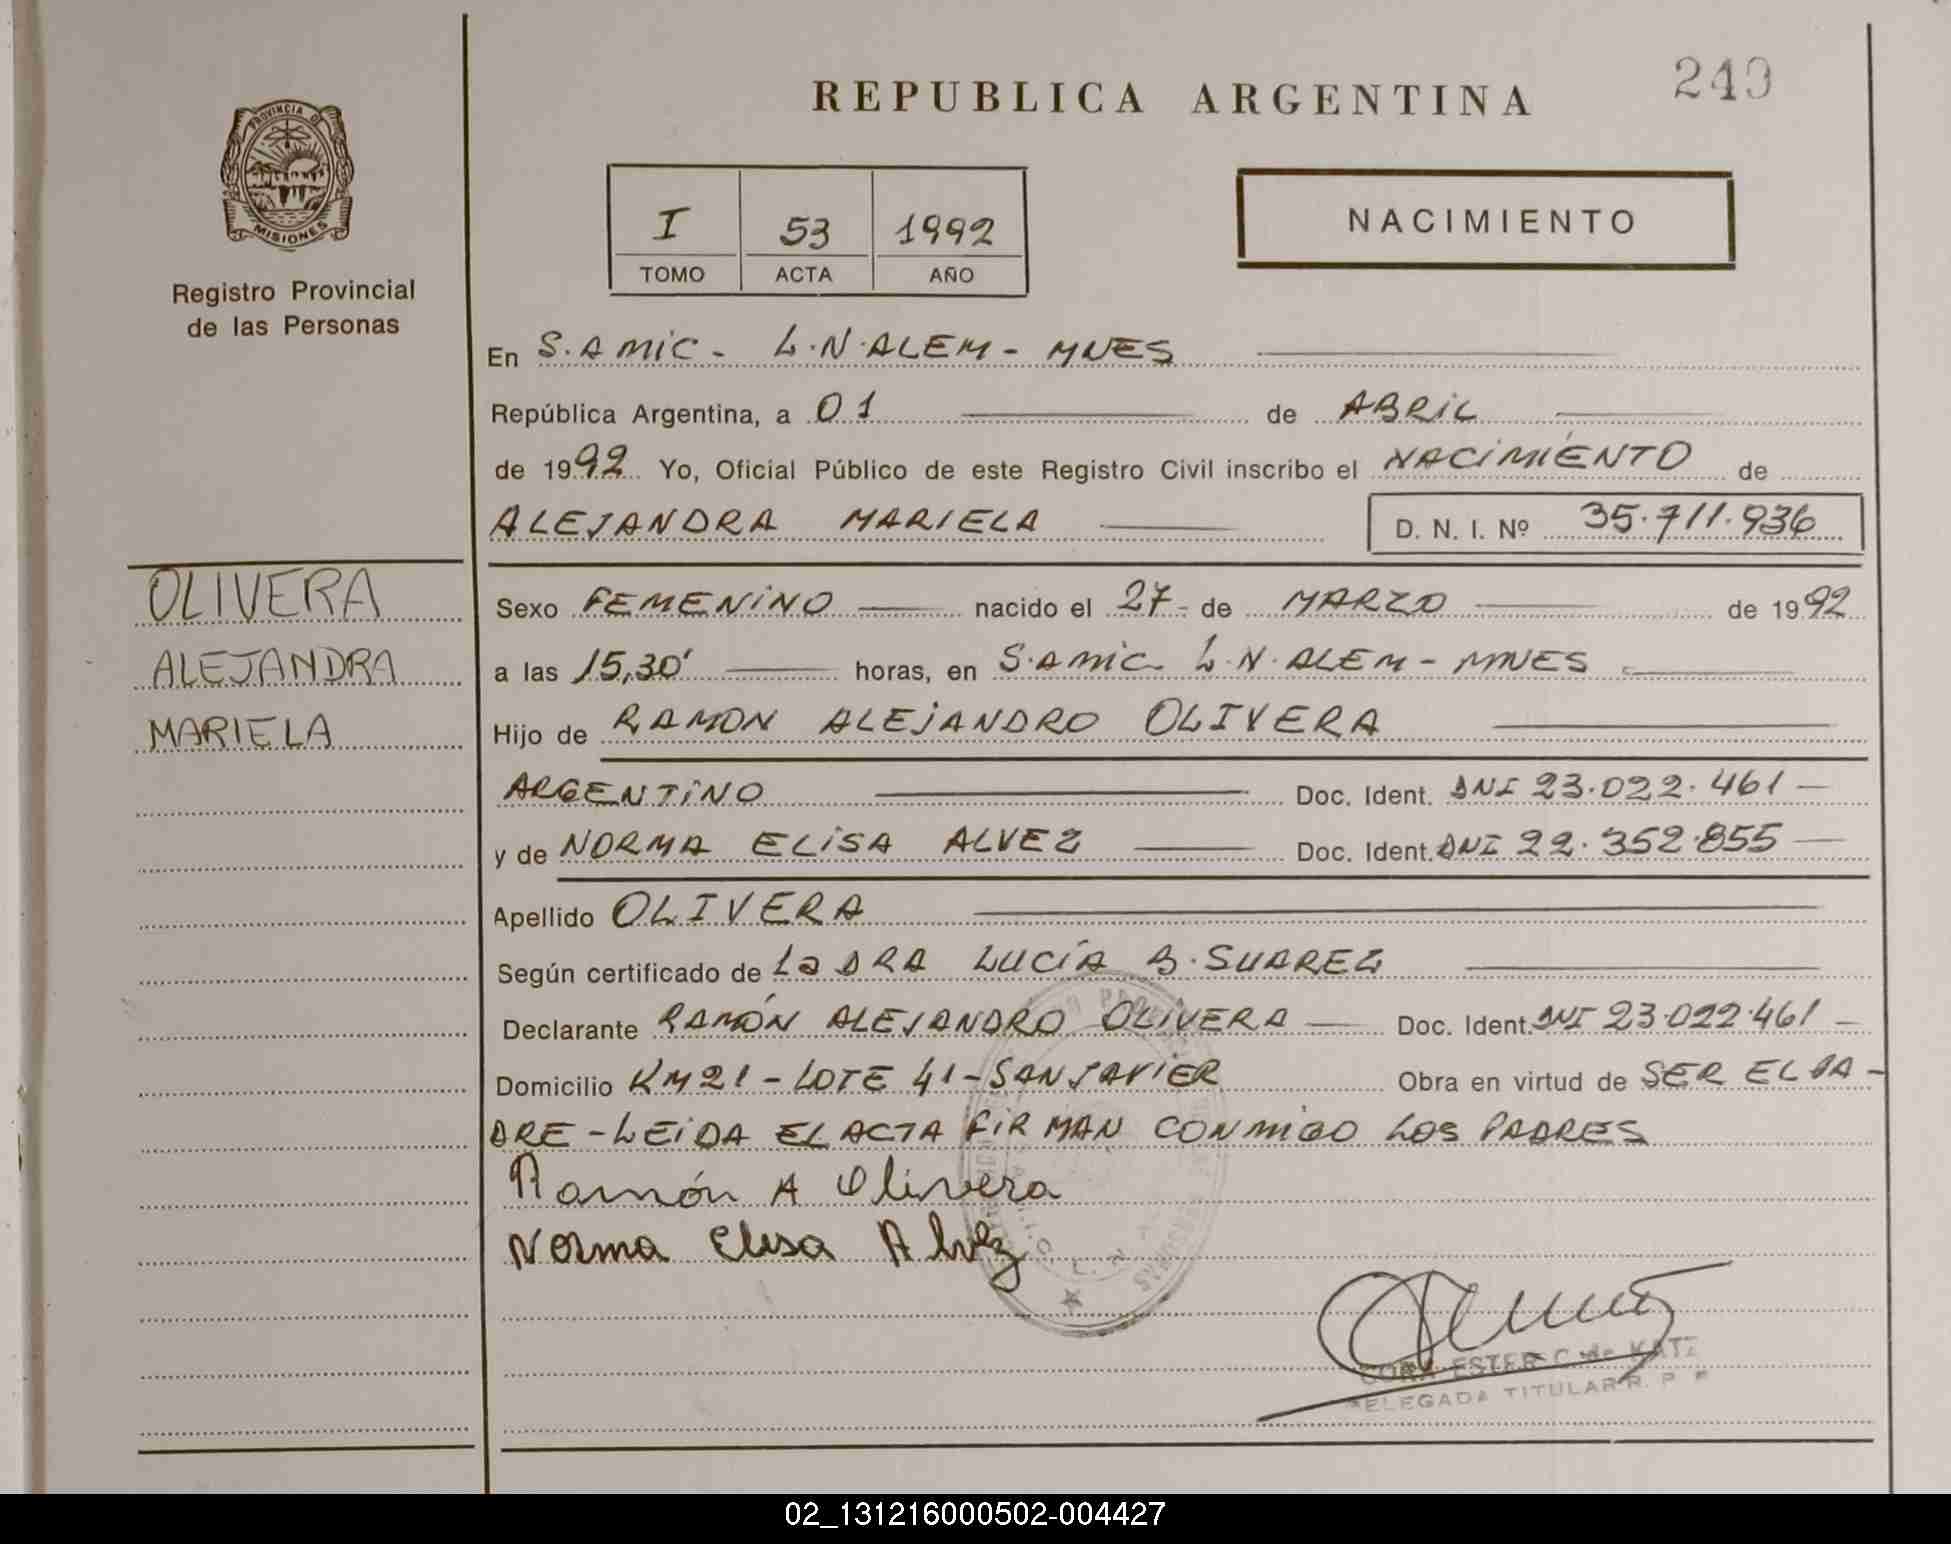 249
REPUBLICA ARGENTINA
PROVINCIA D
MISIONES
Registro Provincial
de las Personas
I 53 1992
TOMO ACTA AÑO
NACIMIENTO
En S. AMIC - L.N. ALEM - MNES
República Argentina, a 01 de ABRIL
de 1992 Yo, Oficial Público de este Registro Civil inscribo el NACIMIENTO de
ALEJANDRA MARIELA D. N. I. Nº 35.711.936
OLIVERA
ALEJANDRA
MARIELA
Sexo FEMENINO nacido el 27 - de MARZO de 1992
a las 15,30' horas, en S. AMIC L.N. ALEM - MNES
Hijo de RAMON ALEJANDRO OLIVERA
ARGENTINO Doc. Ident. DNI 23.022.461 -
y de NORMA ELISA ALVEZ Doc. Ident. DNI 22.352.855 -
Apellido OLIVERA
Según certificado de La DRA LUCÍA B. SUAREZ
Declarante RAMÓN ALEJANDRO OLIVERA Doc. Ident. DNI 23.022.461 -
Domicilio KM 21 - LOTE 41 - SAN JAVIER Obra en virtud de SER EL PA -
DRE - LEIDA EL ACTA FIRMAN CONMIGO LOS PADRES
Ramón A Olivera
Norma Elisa Alvez
CORA ESTER C. de KATZ
DELEGADA TITULAR R. P. P
02_131216000502-004427